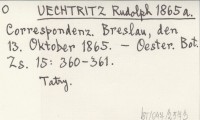 O UECHTRITZ Rudolph 1865a.
Correspondenz. Breslau, den
13. Oktober 1865. — Oester. Bot.
Zs. 15: 360-361.
Tatry.